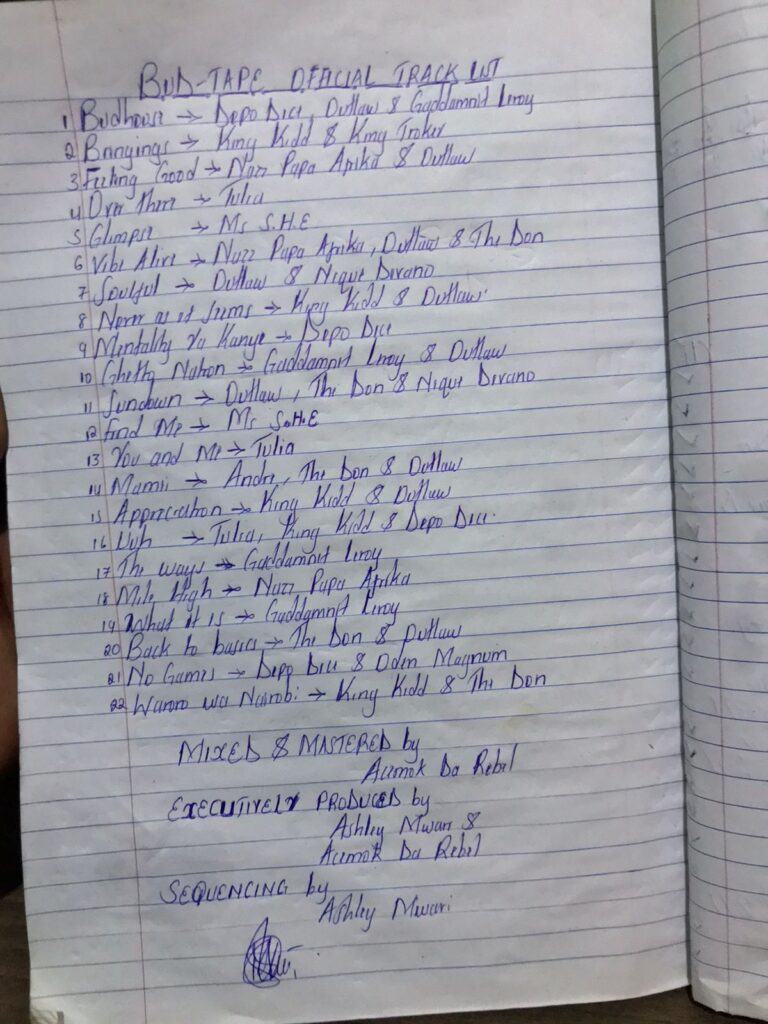 BUD-TAPE OFFICIAL TRACK LIST
1 Budhouse → Depo Dice, Outlaw & Gaddamnit Leroy
2 Bnnyings → King Kidd & King Troker
3 Feeling Good → Nazz Papa Afrika & Outlaw
4 Over there → Tulia
5 Glimpse → Ms S.H.E
6 Vibe Alive → Nazz Papa Afrika, Outlaw & The Don
7 Soulful → Outlaw & Nique Devano
8 Never as it seems → King Kidd & Outlaw
9 Mentality Ya Kanye → Depo Dice
10 Ghetto Nation → Gaddamnit Leroy & Outlaw
11 Sundown → Outlaw, The Don & Nique Devano
12 Find Me → Ms S.H.E
13 You and Me → Tulia
14 Mamii → Andre, The Don & Outlaw
15 Appreciation → King Kidd & Outlaw
16 → Tulia, King Kidd & Depo Dice.
17 The ways → Gaddamnit Leroy
18 Mile High → Nazz Papa Afrika
19 What it is → Gaddamnit Leroy
20 Back to basics → The Don & Outlaw
21 No Games → Depo Dice & Oden Magnum
22 Waroro wa Nairobi → King Kidd & The Don
MIXED & MASTERED by
Acemok Da Rebel
EXECUTIVELY PRODUCED by
Ashley Mwari &
Acemok Da Rebel
SEQUENCING by
Ashley Mwari